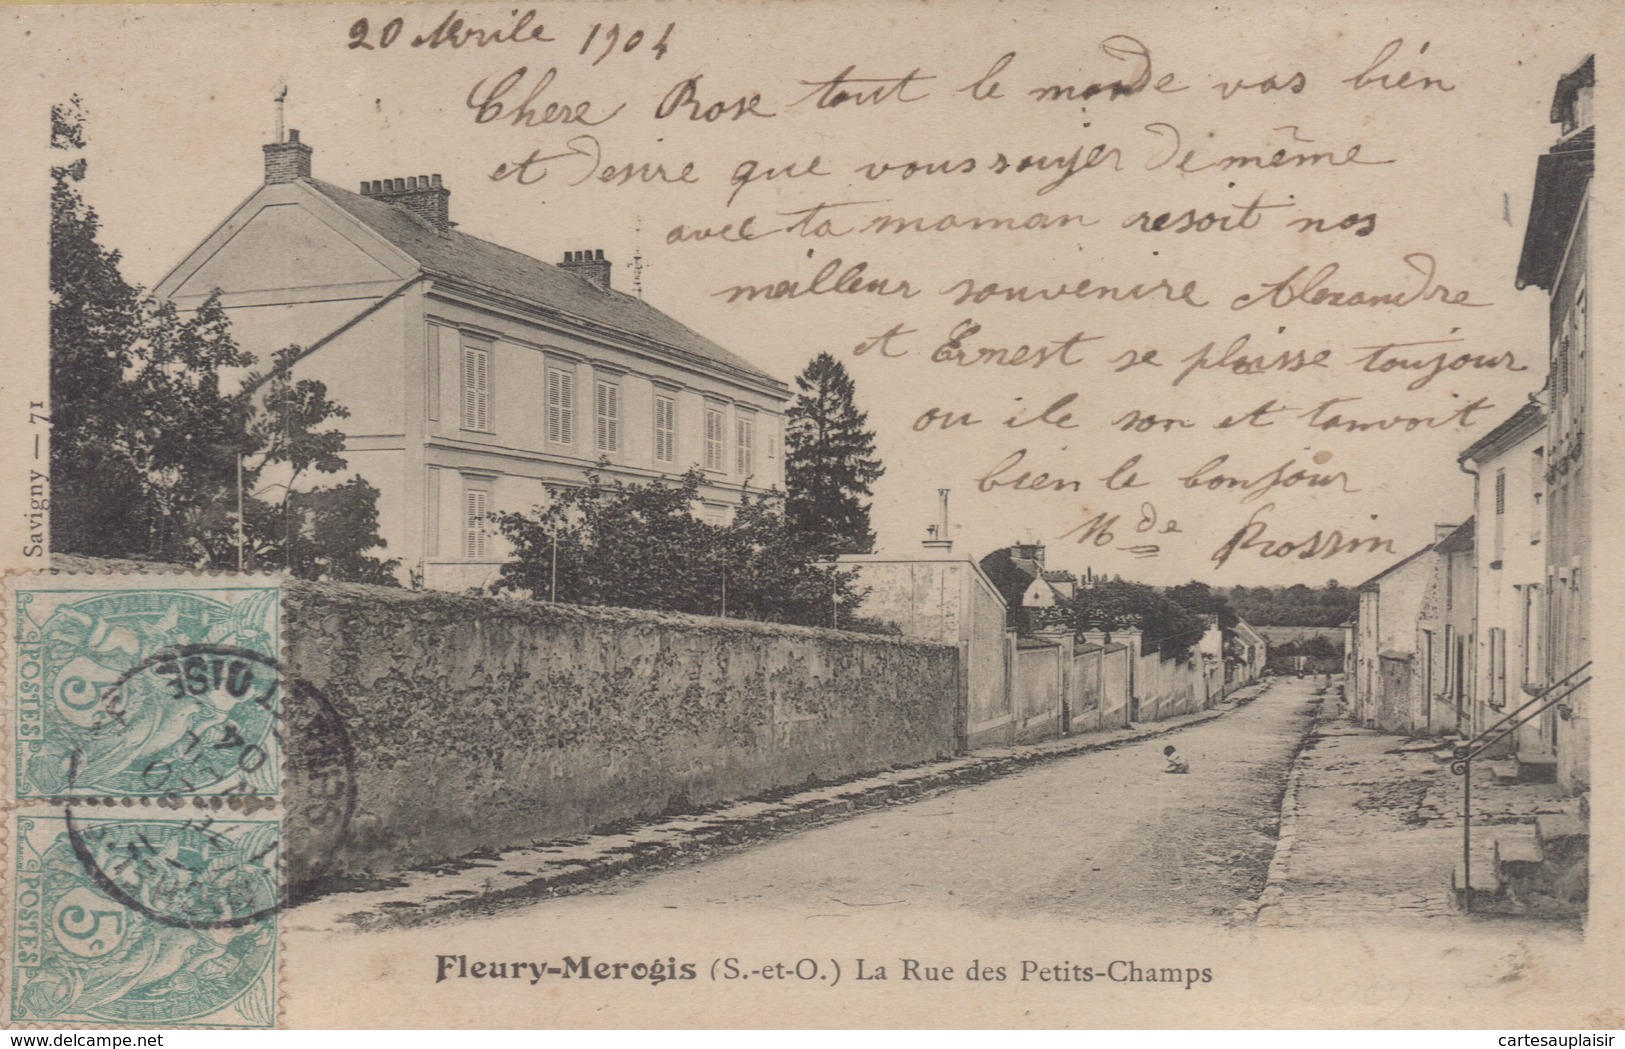 20 Avrile 1904
Chere Rose tout le monde vas bien
et desire que vous soiyer de même
avec ta maman resoit nos
meilleur souvenire Alexandre
et Ernest se plaisse toujour
ou ile son et tanvoit
bien le bonjour
Mde Rossin
Savigny — 71
POSTES
5c
SEINE-ET-OISE
04
POSTES
5c
Fleury-Merogis (S.-et-O.) La Rue des Petits-Champs
cartesauplaisir